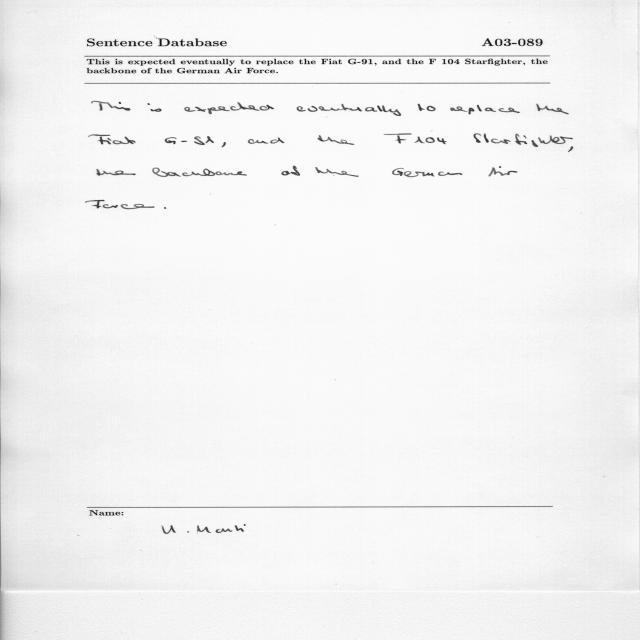 Sentence Database A03-089
This is expected eventually to replace the Fiat G-91, and the F 104 Starfighter, the
backbone of the German Air Force.
This is expected eventually to replace the
Fiat G-91, and the F 104 Starfighter,
the backbone of the German Air
Force.
Name:
U. Marti